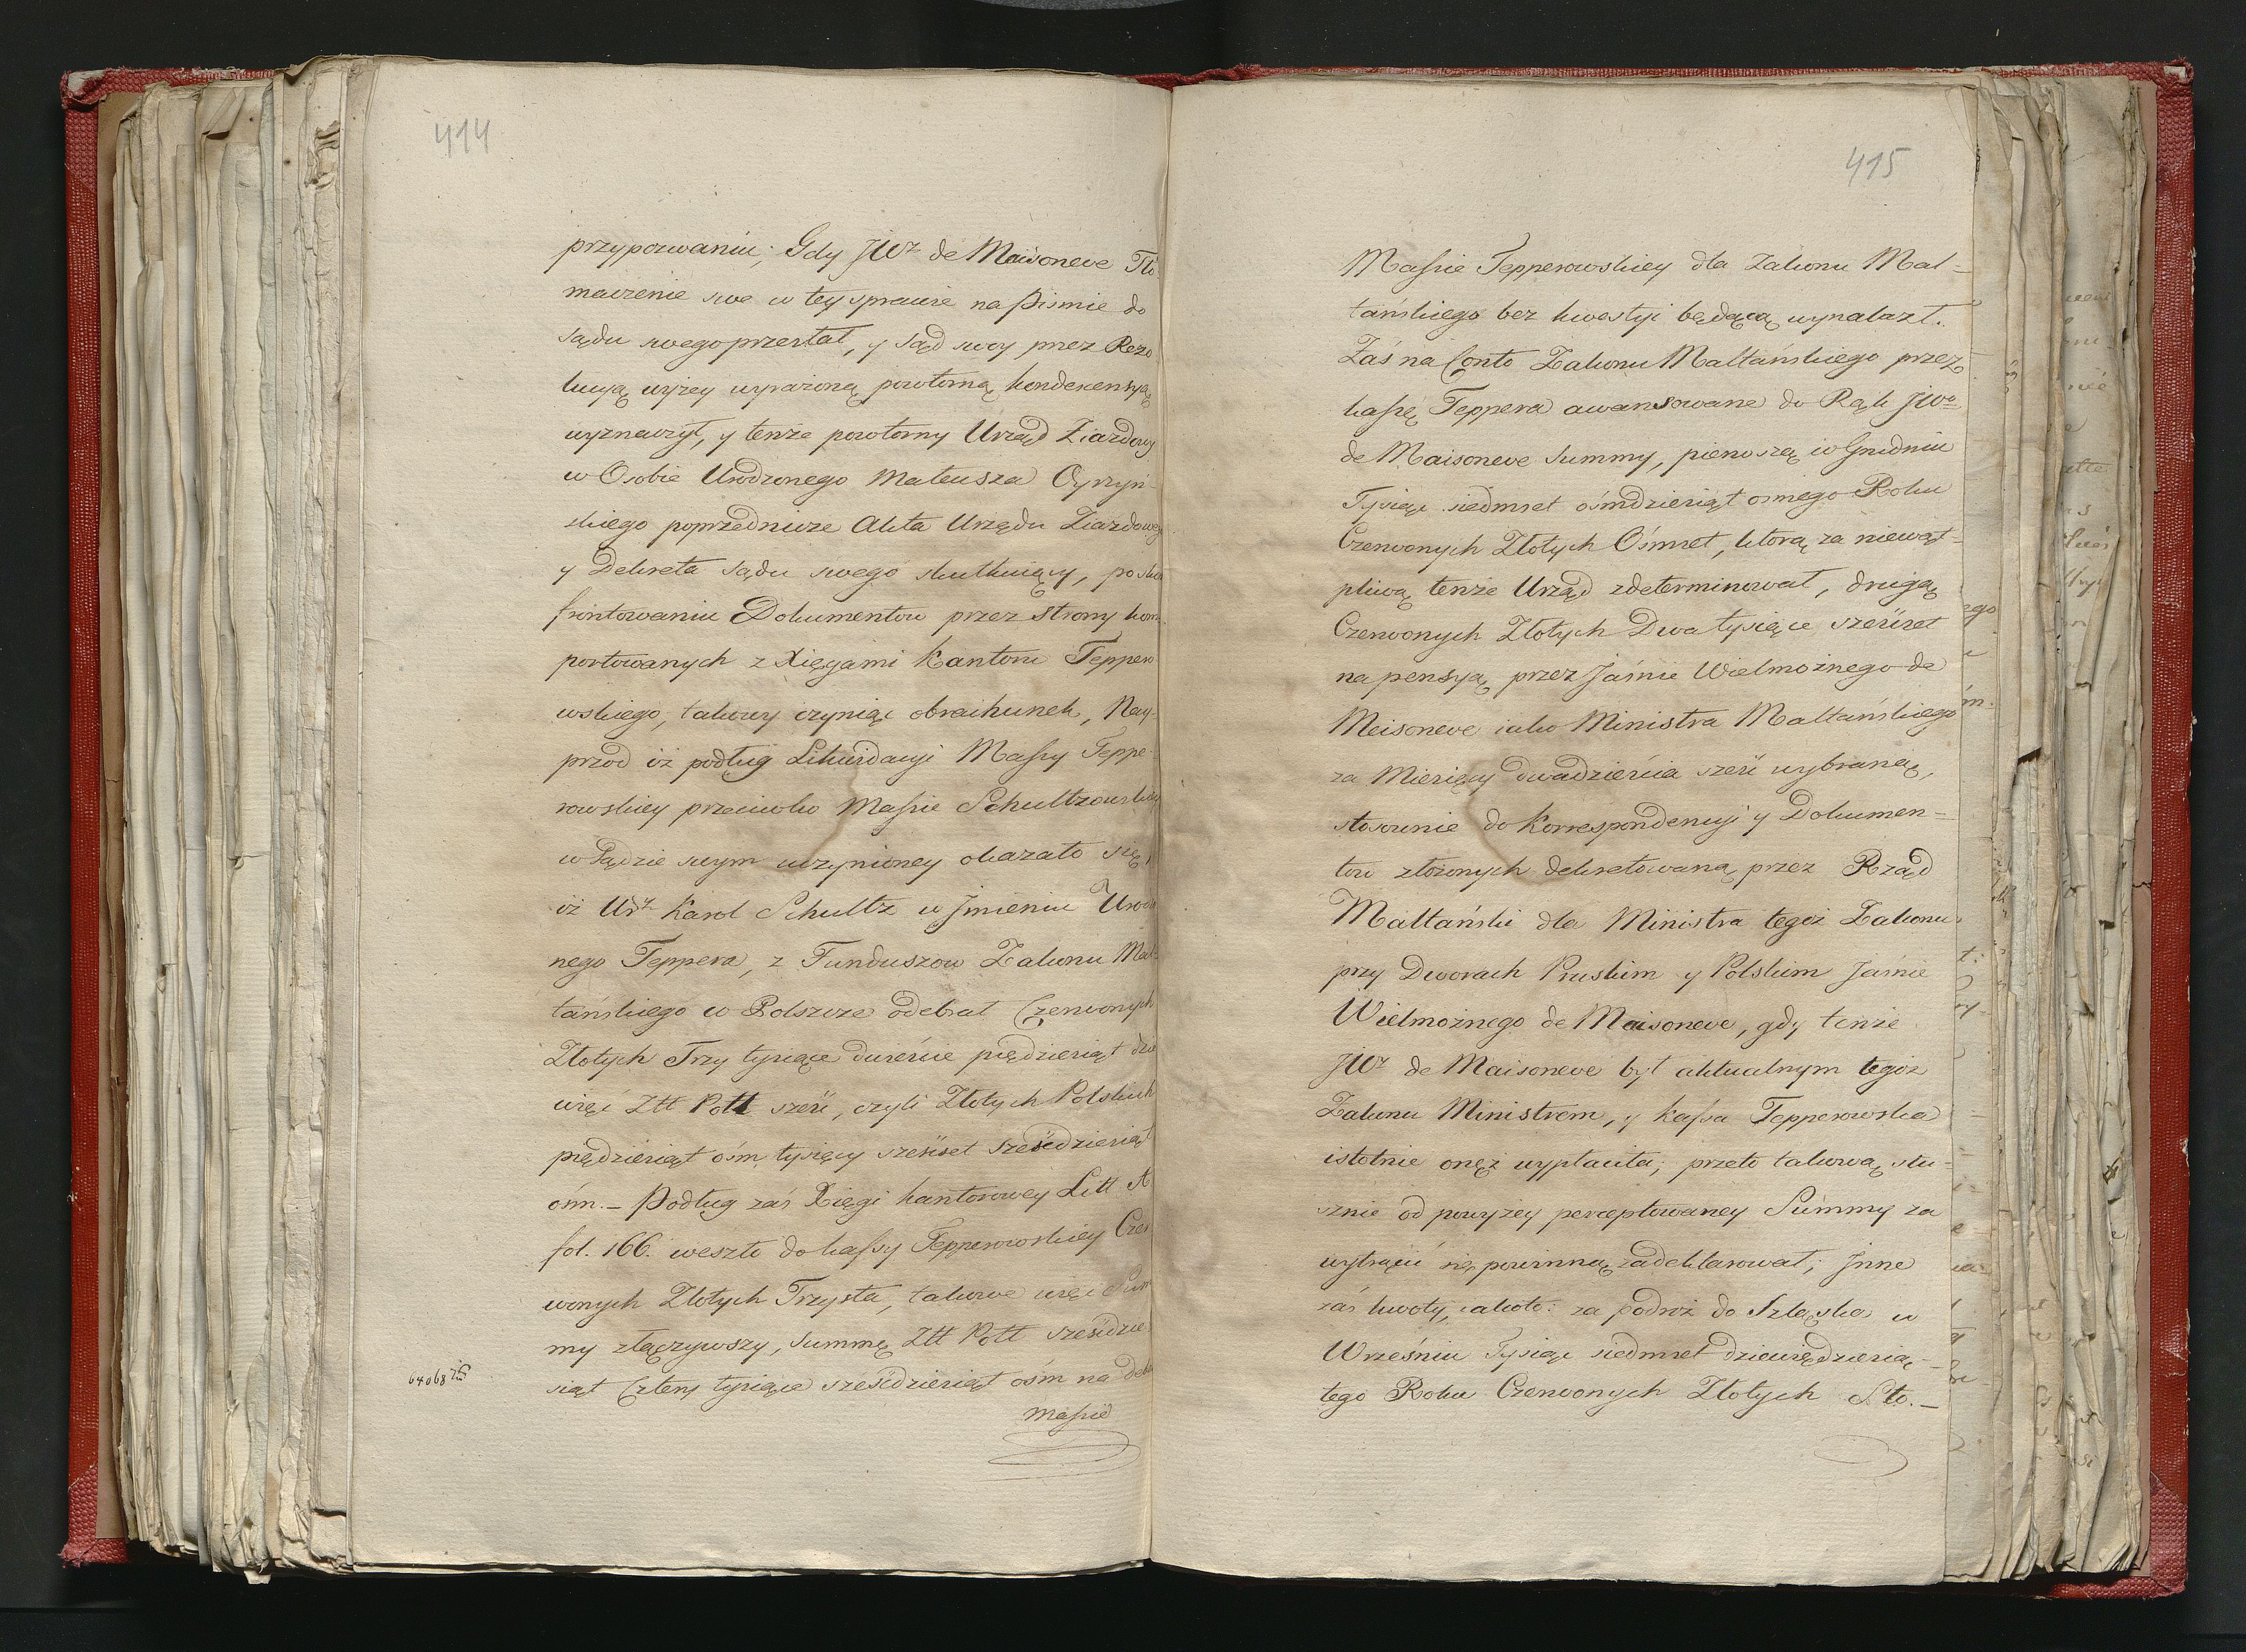 414
przypozwaniu; Gdy JWz de Maisoneve Tło
maczenie swe w tey sprawie na Pismie do
sądu swego przesłał, y sąd swoy przez Rezo
lucyą wyżey wyrażoną powtorną kondescensyą
wyznaczył, y tenże powtorny Urząd Ziazdowy
w Osobie Urodzonego Mateusza Cyryń-
skiego poprzednicze Akta Urzędu Ziazdoweg
y Dekreta sądu swego skutkuiący, po skon
frontowaniu Dokumentow przez strony kom
portowanych z Xięgami Kantoru Teppero
wskiego, takowy czyniąc obrachunek, Nay-
przod iż podług Likwidacyi Massy Teppe-
rowskiey przeciwko Massie Schultzowskiey
w Sądzie swym uczynioney okazało się,
iż Urz Karol Schultz w Jmieniu Urodzo
nego Teppera, z Funduszow Zakonu Mal-
tańskiego w Polszcze odebrał Czerwonych
Złotych Trzy tysiące dwieście pięćdziesiąt dzie
więć Złł Poll sześć, czyli Złotych Polskich
pięćdziesiąt ośm tysięcy sześćset sześćdziesiąt
ośm. – Podług zaś Xięgi kantorowey Litt A
fol. 166. weszło do kassy Tepperowskiey Czer
wonych Złotych Trzysta, takowe więc Sum
my złączywszy, summę Złł Poll sześćdzie
siąt Cztery tysiące sześćdziesiąt ośm na deb
64068
Massie
415
Massie Tepperowskiey dla Zakonu Mal-
tańskiego bez kwestyi będącą wynalazł.
Zaś na Conto Zakonu Maltańskiego przez
kassę Teppera awansowane do Rąk JWo
de Maisoneve Summy, pierwszą w Grudniu
Tysiąc siedmset ośmdziesiąt osmego Roku
Czerwonych Złotych Ośmset, którą za niewąt-
pliwą tenże Urząd zdeterminował, drugą
Czerwonych Złotych Dwa tysiące sześćset
na pensyą przez Jaśnie Wielmożnego de
Meisoneve iako Ministra Maltańskiego
za Miesięcy dwadzieścia sześć wybraną,
stosownie do Korrespondencyi y Dokumen-
tow złożonych dekretowaną przez Rząd
Maltański dla Ministra tegoż Zakonu
przy Dworach Pruskim y Polskim Jaśnie
Wielmożnego de Maisoneve, gdy tenże
JWz de Maisoneve był aktualnym tegoż
Zakonu Ministrem, y kassa Tepperowska
istotnie onęż wypłaciła; przeto takową słu-
sznie od powyżey perceptowaney Summy za
wytrącić się powinną zadeklarował; Jnne
zaś kwoty, iakoto: za podroż do Szląska w
Wrześniu Tysiąc siedmset dziewięćdziesią-
tego Roku Czerwonych Złotych Sto. –